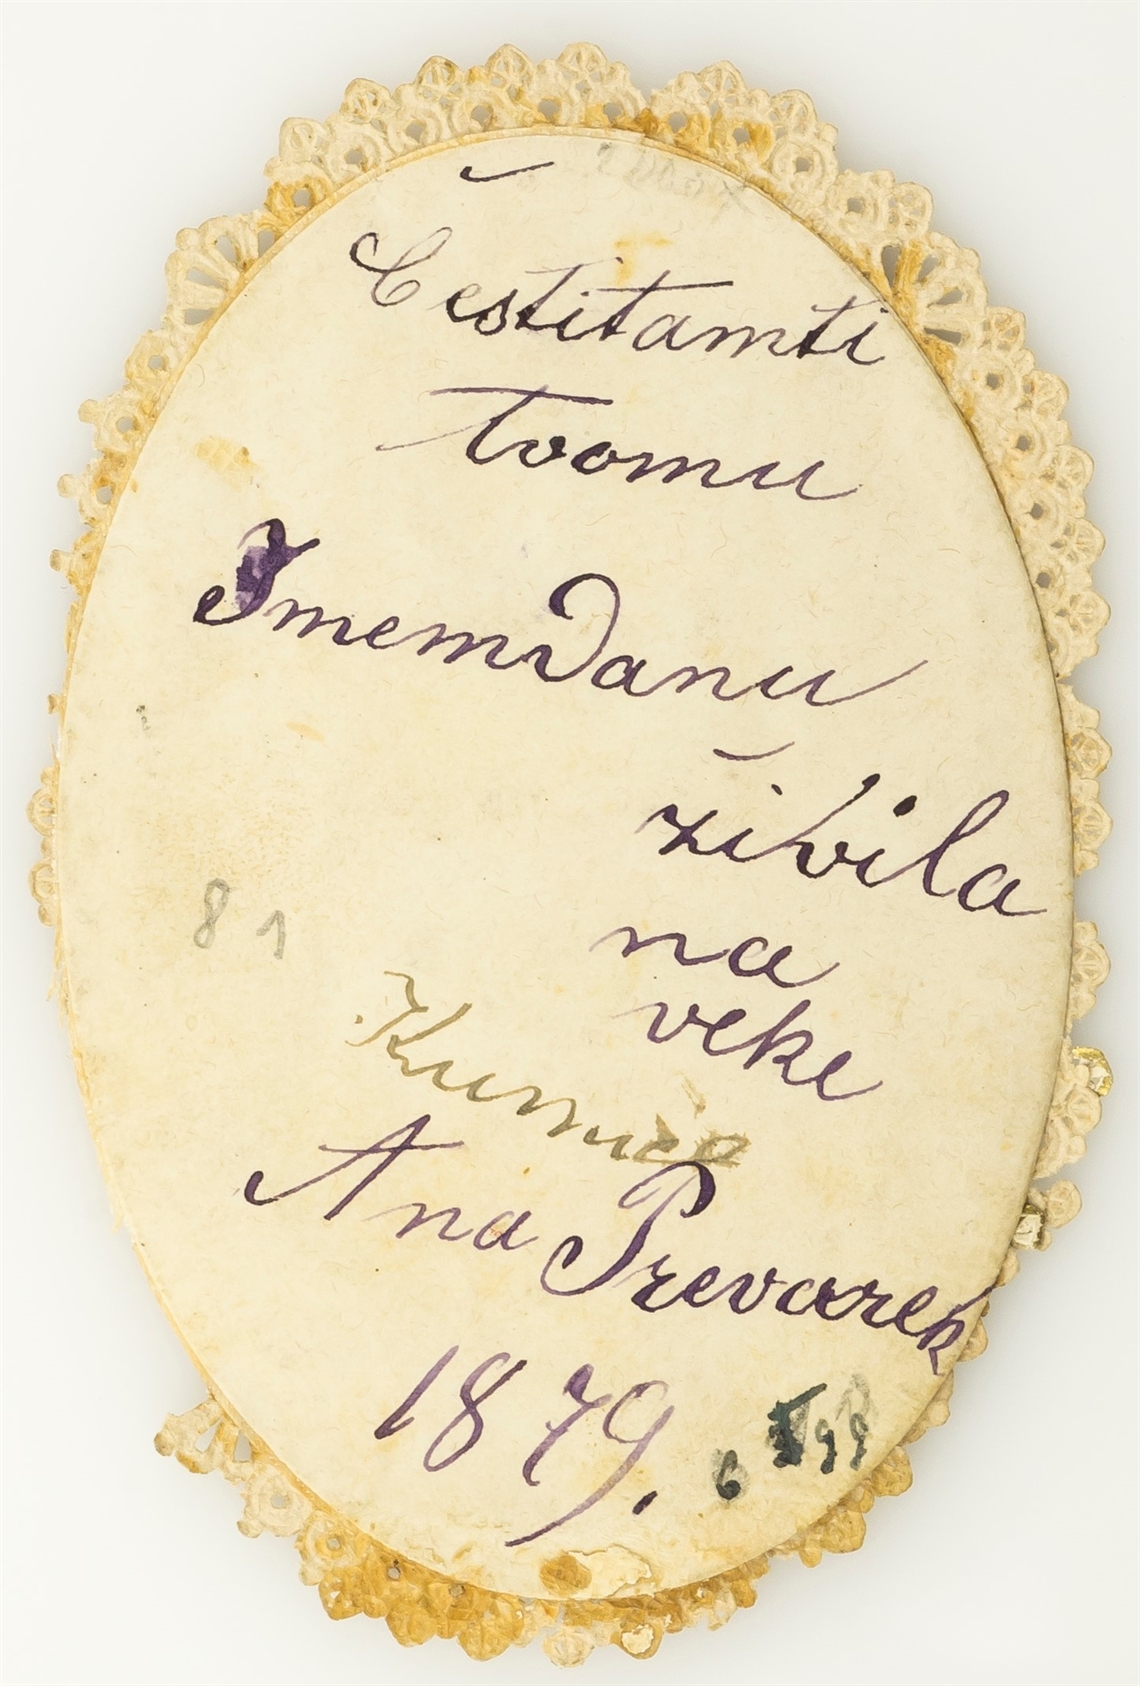 Čestitamti
tvomu
Imemdanu
živila
na
veke
Ana Prevarek
1879.
81